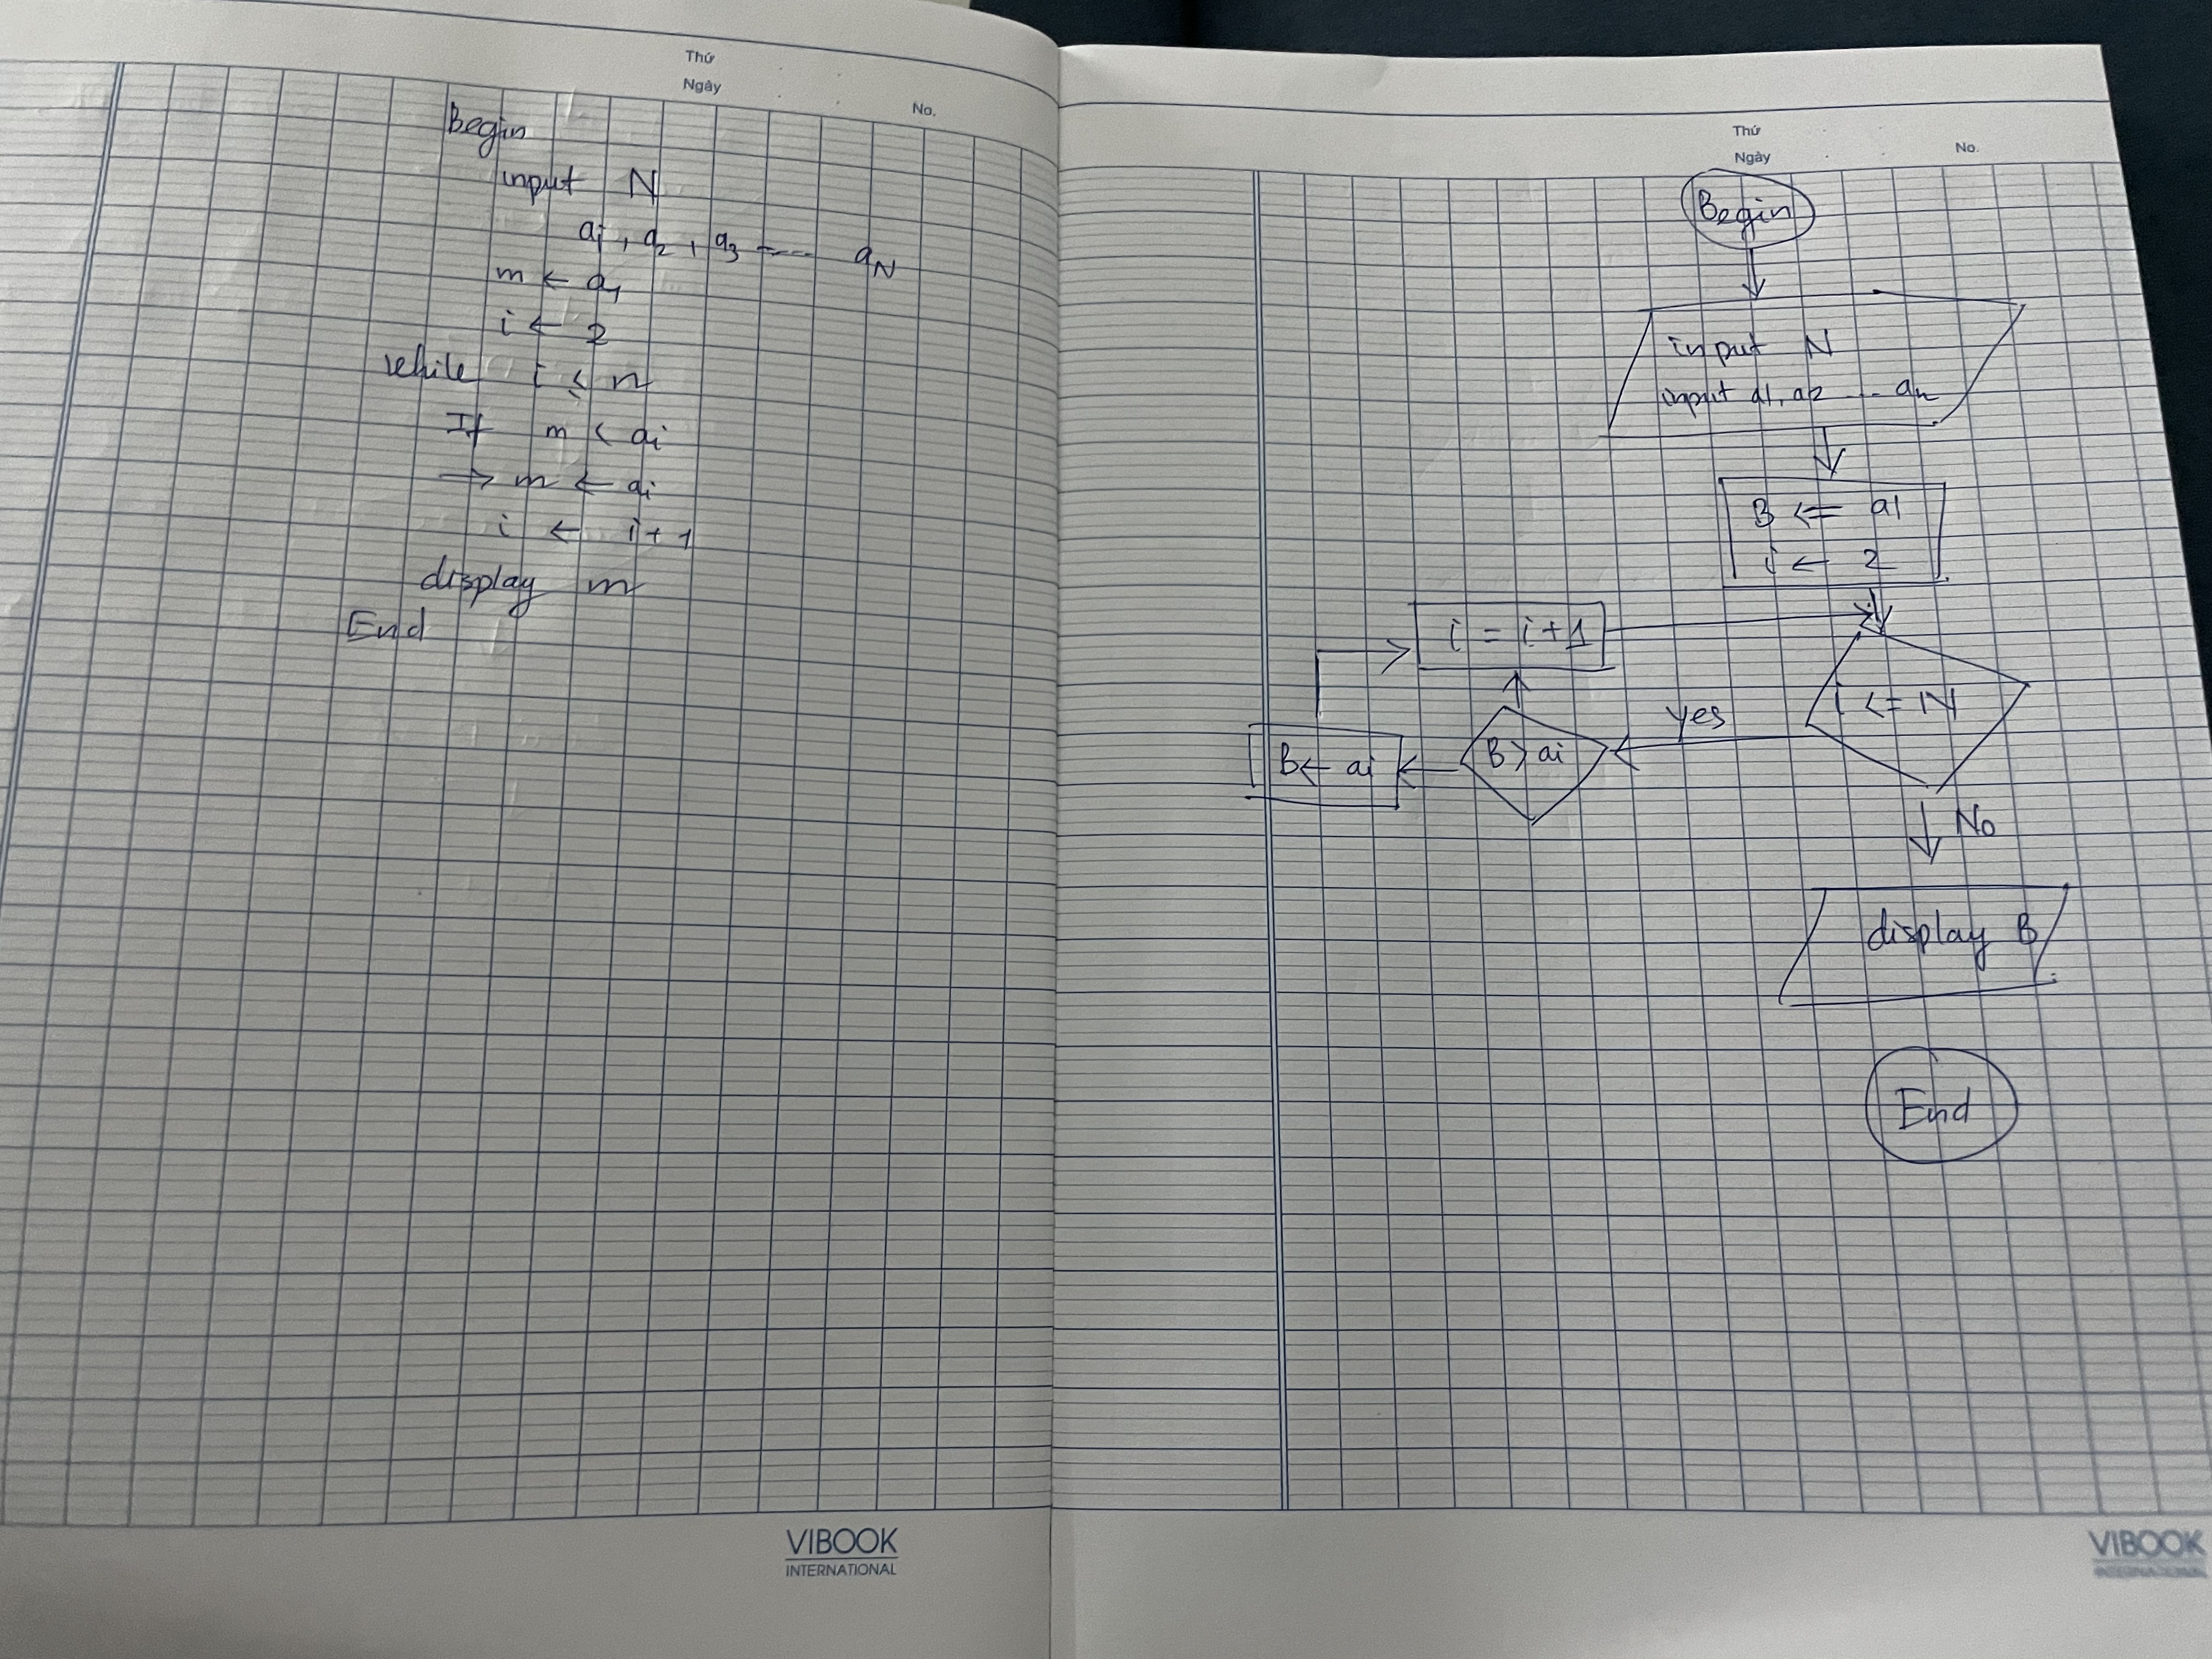 Thứ
Ngày
No.
Begin
input N
a1, a2, a3, ---- aN
m ← a1
i ← 2
while i ≤ n
If m < ai
→ m ← ai
i ← i+1
display m
End
VIBOOK
INTERNATIONAL
Thứ
Ngày
No.
Begin
input N
input a1, a2 --- an
B <= a1
i ← 2
i = i+1
i <= N
yes
B > ai
B ← ai
No
display B
End
VIBOOK
INTERNATIONAL